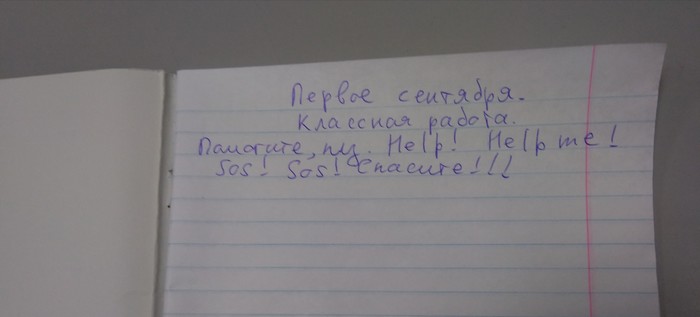 Первое сентября.
Классная работа.
Памагите, пж. Help! Help me!
Sos! Sos! Спасите!!!